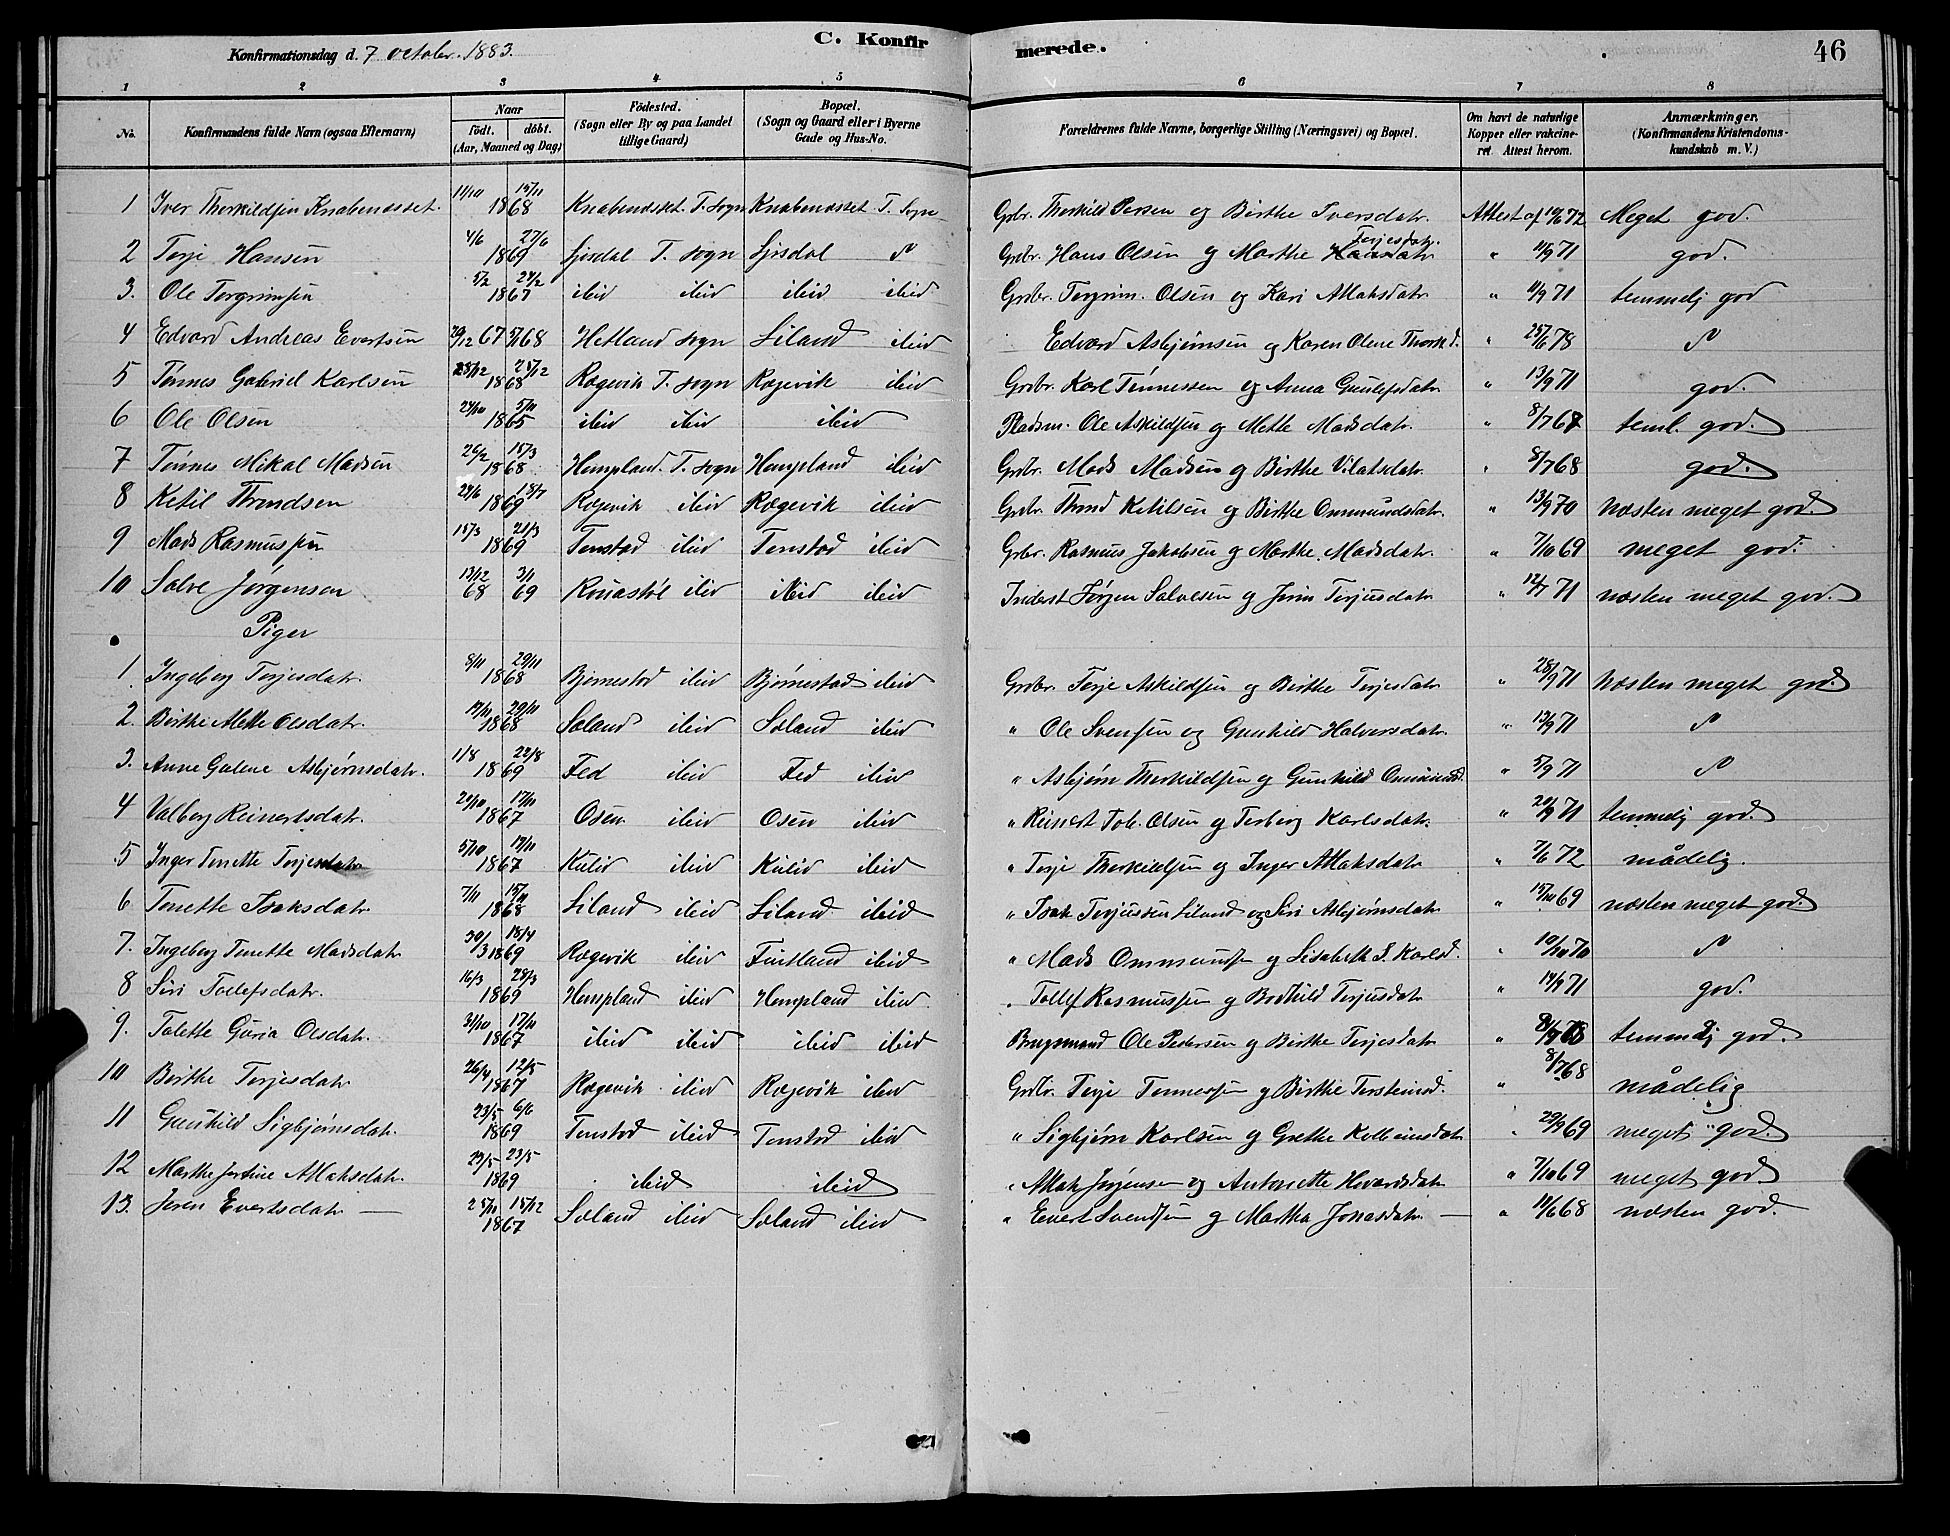 Konfirmationsdag d. 7 October. 1883.
C. Konfirmerede.
46
1 2 3 4 5 6 7 8
No. Konfirmandens fulde Navn (ogsaa Efternavn) Naar födt. döbt. (Aar, Maaned og Dag) Födested. (Sogn eller By og paa Landet tillige Gaard.) Bopæl. (Sogn og Gaard eller i Byerne Gade og Hus-No. Forældrenes fulde Navne, borgerlige Stilling (Næringsvei) og Bopæl. Om havt de naturlige Kopper eller vakcineret. Attest herom. Anmærkninger. (Konfirmandens Kristendomskundskab m. V.)
1 Iver Therkildsen Knabenæsset. 11/10 15/11 1868 Knabenæsset. T. Sogn Knabenæsset T. Sogn Grbr. Therkild Persen og Birthe Iversdatr. Attest af 10/6 72 Meget god.
2 Terje Hansen 4/6 27/6 1869 T. Sogn Grbr. Hans Olsen og Marthe Terjesdatr. " 11/9 71 god.
3. Ole Tergrimsen 5/2 24/2 1867 ibid ibid ibid ibid Grbr. Tergrim Olsen og Kari Atlaksdatr " 11/9 71 temmelig god
4 Edvard Andreas Evertsen 29/12 67 5/1 68 Hetland Sogn Liland ibid Edvard Asbjørnsen og Karen Olene " 25/6 78
5 Tønnes Gabriel Karlsen 23/12 1868 Rægevik T. Sogn Rægevik ibid Grbr. Karl Tønnessen og Anna Gunlefsdatr " 13/9 71 god.
6 Ole Olsen 24/10 5/11 1865 ibid ibid ibid Pladsm. Ole Askildsen og Mette Madsdatr. " 8/7 67 teml. god.
7 Tønnes Mikal Madsen 26/2 15/3 1868 Hompland. T. Sogn Hompland ibid Grbr. Mads Madsen og Birthe " 8/7 68 god.
8 Ketil Throndsen 24/6 18/7 1869 Rægevik ibid Rægevik ibid Grbr. Thrond Ketilsen og Birthe Ommundsdatr. " 13/9 70 næsten meget god.
9 Mads Rasmussen 15/3 21/3 1869 Tonstad ibid Tonstad ibid Grbr. Rasmus Jakobsen og Marthe Madsdatr. " 7/10 69 meget god.
10 Salve Jørgensen 13/12 68 3/1 69 ibid ibid ibid Inderst Jørgen Salvesen og Terjusdatr " 12/7 71 næsten meget god.
Piger
1. Ingeborg Terjesdatr. 8/11 29/11 1868 Bjørnestad ibid Bjørnestad ibid Grbr. Terje Askildsen og Birthe Terjesdatr " 28/9 71 næsten meget god.
2. Birthe Mette Olsdatr. 29/11 1868 Soland ibid Soland ibid " Ole Svensen og Gunhild Halvorsdatr. " 13/9 71
3. Anne Galene Asbjørnsdatr. 1/8 22/8 1869 Fed ibid Fed ibid " Asbjørn Therkildsen og Gunhild " 5/9 71
4 Valborg Reinertsdatr. 17/11 1867 Osen ibid Osen ibid " Reinert Tob. Olsen og Terborg Karlsdatr. " 20/9 71 temmelig god.
5 Inger Tonette Terjesdatr 5/10 1867 Kulid ibid Kulid ibid " Terje Therkildsen og Inger Atlaksdatr " 7/6 72 mådelig.
6 Tonette Isaksdatr 7/11 15/11 1868 Liland ibid Liland ibid " Isak Terjussen Liland og Siri Asbjørnsdatr " 15/10 69 næsten meget god.
7. Ingeborg Tonette Madsdatr 30/3 18/4 1869 Rægevik ibid Fintland ibid " Mads Ommundsen og Lisabeth S. Karlsd. " 10/10 70
8 Siri Tollefsdatr. 16/3 28/3 1869 Hompland ibid Hompland ibid. " Tollef Rasmussen og Bodhild Terjusdatr 14/9 71 god.
9. Talette Guria Olsdatr. 31/10 17/11 1867 ibid ibid ibid ibid Brugsmand Ole Pedersen og Birthe Terjesdatr " 8/7 68 temmelig god.
10 Birthe Terjesdatr 26/4 12/5 1867 Rægevik ibid Rægevik ibid Grbr. Terje Tønnessen og Birthe Tersteinsd. " 8/7 68 mådelig
11 Gunhild Sigbjørnsdatr. 23/5 6/6 1869 Tonstad ibid Tonstad ibid " Sigbjørn Karlsen og Grethe Kolbeinsdatr " 29/9 69 meget god.
12 Marthe Jortine Atlaksdatr. 23/5 1869 ibid ibid " Atlak Jørgensen og Antonette Hovardsdatr " 7/10 69 meget god
13. Joren Evertsdatr — 25/11 15/12 1867 Soland ibid Soland ibid " Evert Svendsen og Martha Jonasdatr. — " 11/6 68 næsten god.